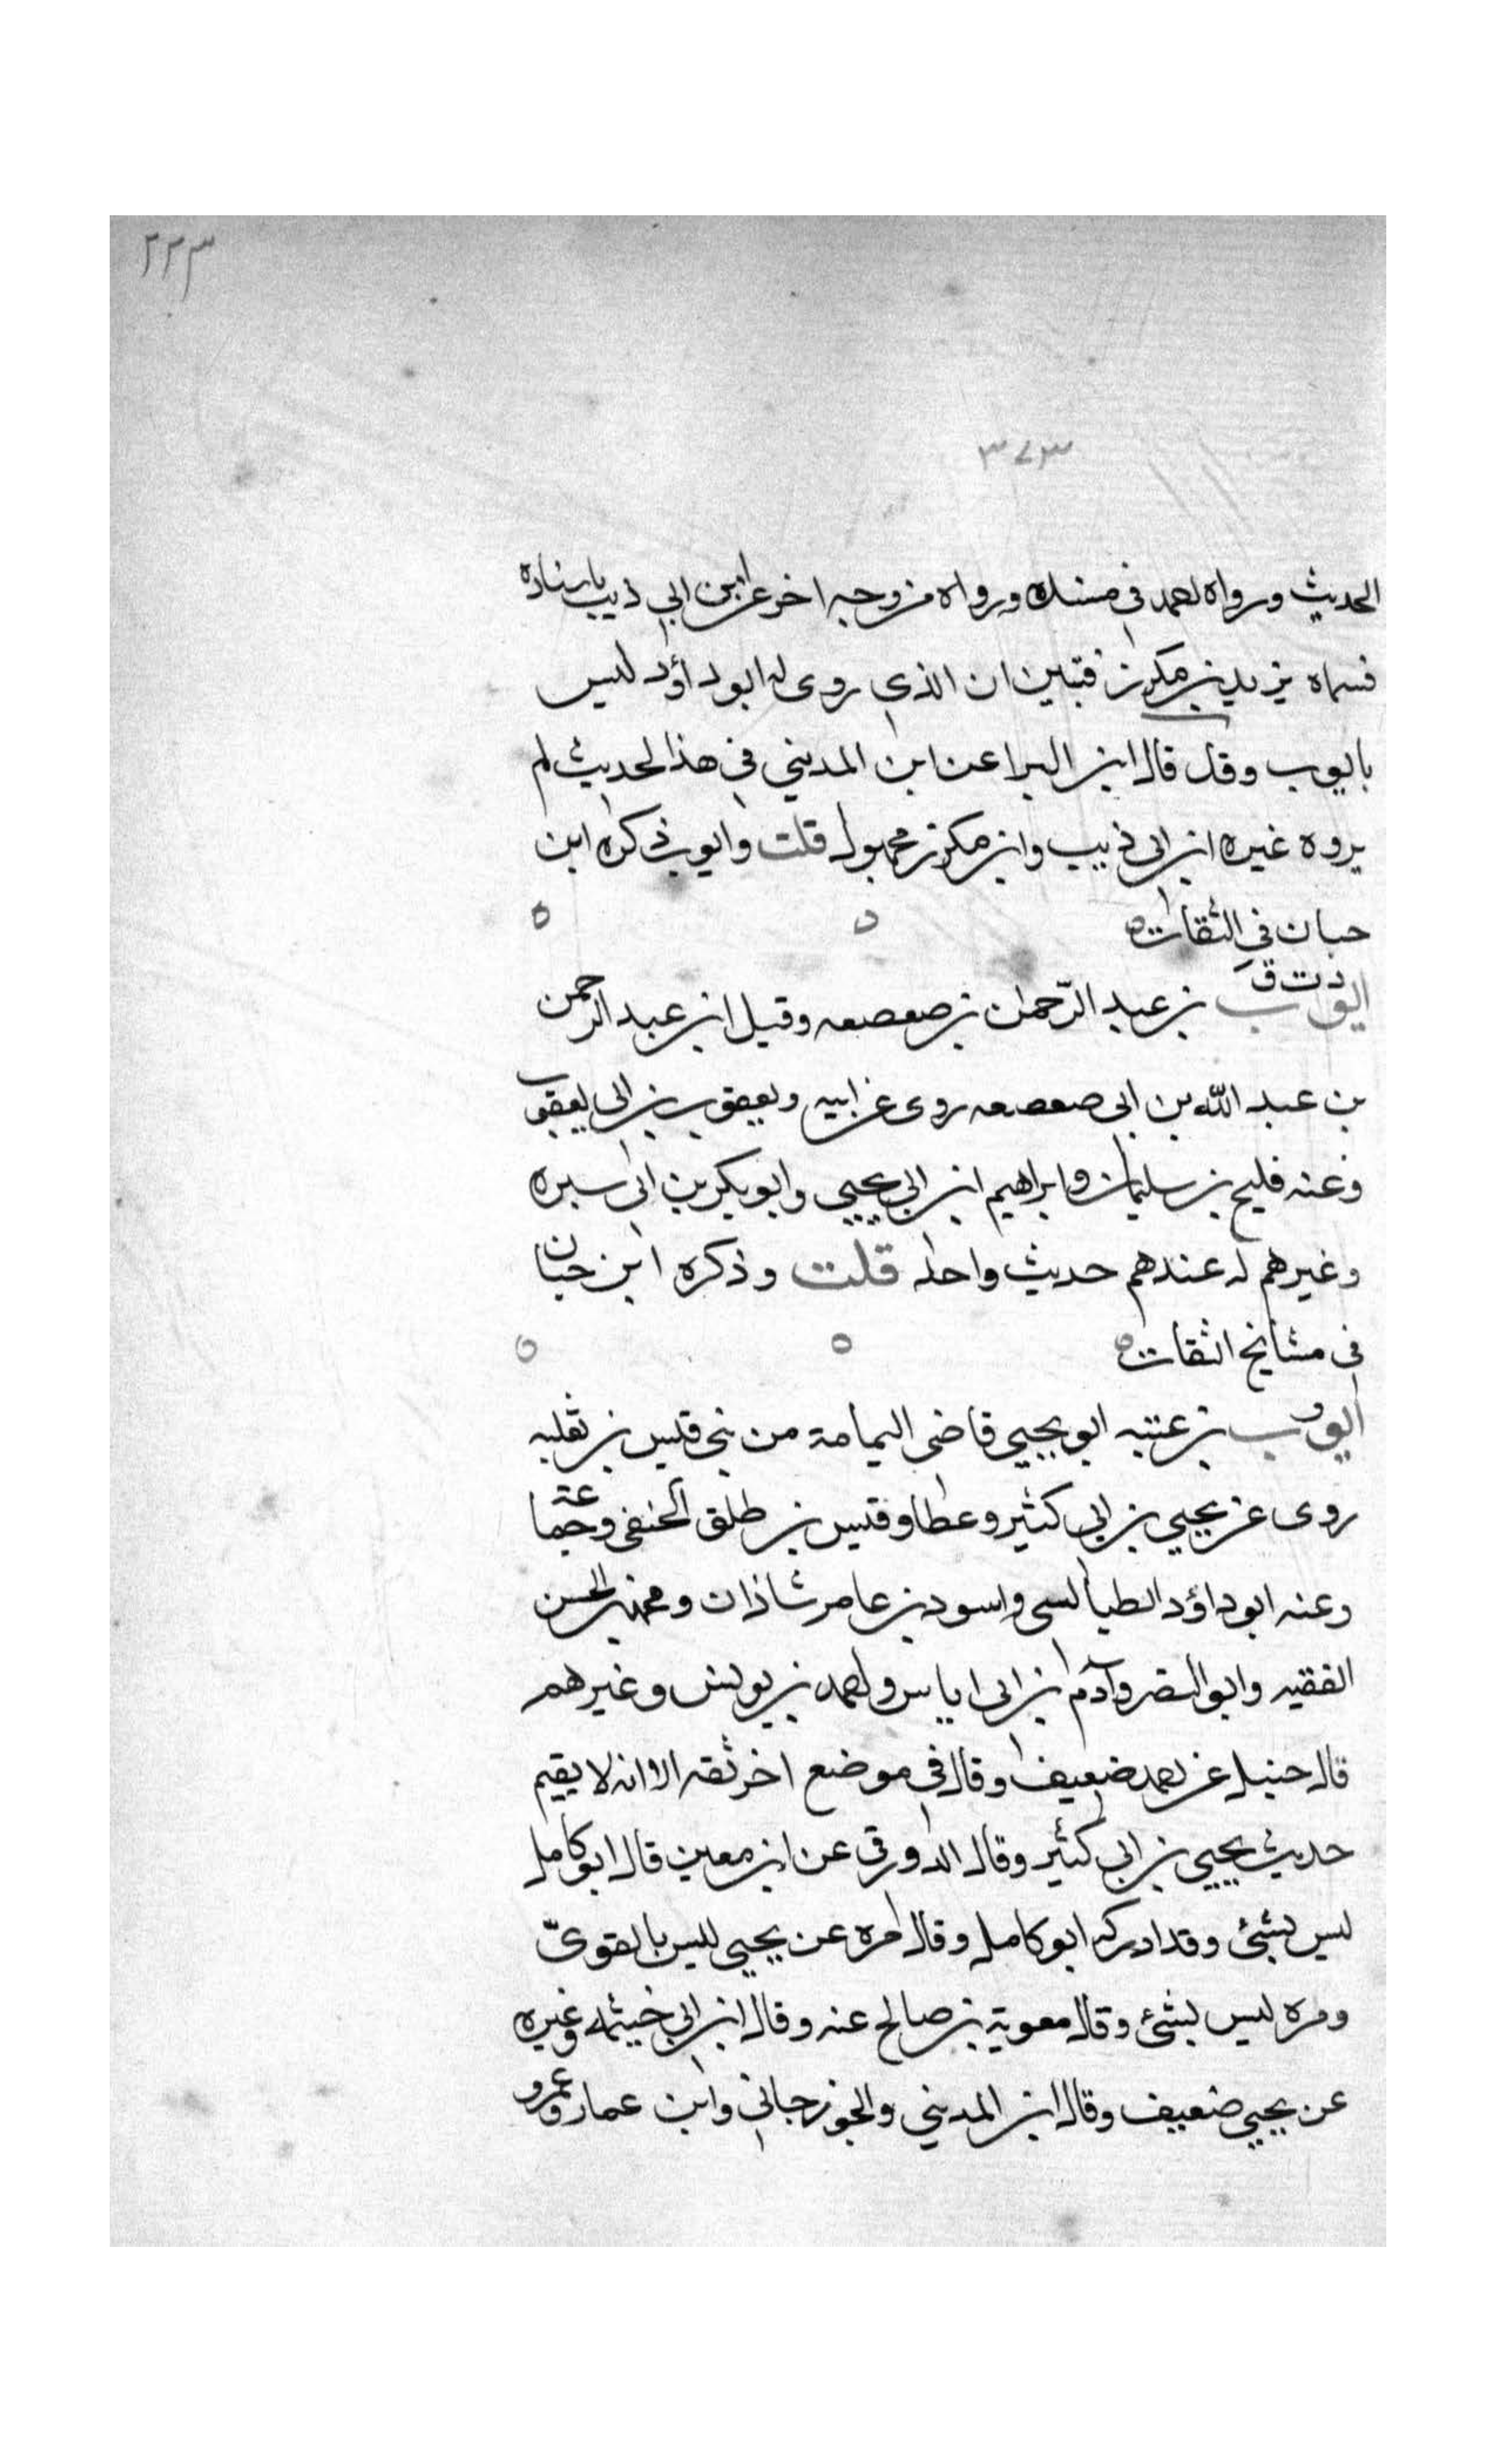 ٢٢٣
٣٧٣
الحديث ورواه احمد في مسنده ورواه من وجه اخر عن ابن ابي ذيب باسناده
فسماه يزيد بن مكرز فتبين ان الذي روى له ابو داؤد ليس
بايوب وقد قال ابن البرا عن ابن المديني في هذا الحديث لم
يروه غير ابن ابي ذيب وابن مكرز مجهول قلت وايوب ذكره ابن
حبان في الثقات ه ه ه
د ت ق
ايوب بن عبد الرحمن بن صعصعه وقيل ابن عبد الرحمن
بن عبد الله بن ابي صعصعه روى عن ابيه ويعقوب بن ابي يعقوب
وعنه فليح بن سليمان وابراهيم ابن ابي يحيي وابو بكر بن ابي سبره
وغيرهم له عندهم حديث واحد قلت وذكره ابن حبان
في مشايخ الثقات ه ه ه
ايوب بن عتبه ابو يحيي قاضي اليمامة من بني قيس بن ثعلبه
روى عن يحيي بن ابي كثير وعطا وقيس بن طلق الحنفي وجماعة
وعنه ابو داؤد الطيالسي واسود بن عامر شاذان ومحمد بن الحسن
الفقيه وابو النضر وآدم بن ابي اياس واحمد بن يونس وغيرهم
قال حنبل عن احمد ضعيف وقال في موضع اخر ثقه الا انه لا يقيم
حديث يحيي بن ابي كثير وقال الدورقي عن ابن معين قال ابو كامل
ليس بشئ وقد ادركه ابو كامل وقال مره عن يحيي ليس بالقويّ
ومره ليس بشئ وقال معوية بن صالح عنه وقال ابن ابي خيثمه وغيره
عن يحيي ضعيف وقال ابن المديني والجوزجاني وابن عمار وعمرو